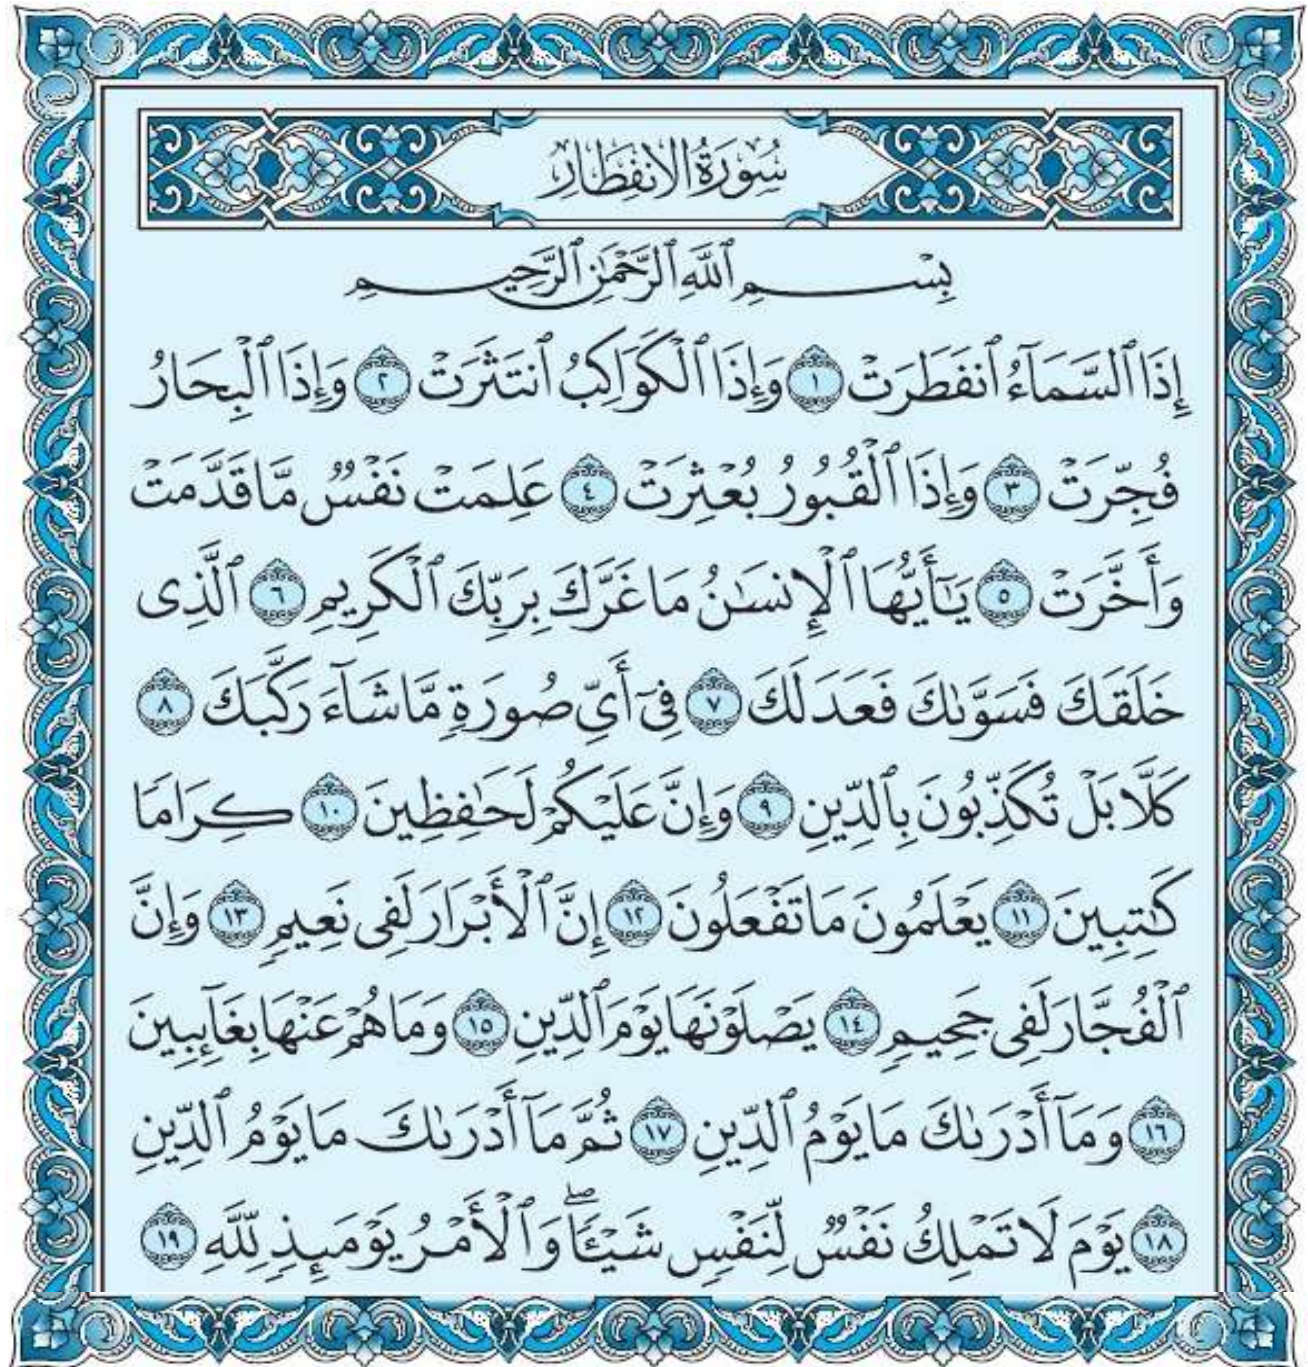 سُورَةُ الانفِطَار
بِسْمِ ٱللَّهِ ٱلرَّحْمَٰنِ ٱلرَّحِيمِ
إِذَا ٱلسَّمَآءُ ٱنفَطَرَتْ ١ وَإِذَا ٱلْكَوَاكِبُ ٱنتَثَرَتْ ٢ وَإِذَا ٱلْبِحَارُ
فُجِّرَتْ ٣ وَإِذَا ٱلْقُبُورُ بُعْثِرَتْ ٤ عَلِمَتْ نَفْسٌ مَّا قَدَّمَتْ
وَأَخَّرَتْ ٥ يَٰٓأَيُّهَا ٱلْإِنسَٰنُ مَا غَرَّكَ بِرَبِّكَ ٱلْكَرِيمِ ٦ ٱلَّذِى
خَلَقَكَ فَسَوَّىٰكَ فَعَدَلَكَ ٧ فِىٓ أَىِّ صُورَةٍ مَّا شَآءَ رَكَّبَكَ ٨
كَلَّا بَلْ تُكَذِّبُونَ بِٱلدِّينِ ٩ وَإِنَّ عَلَيْكُمْ لَحَٰفِظِينَ ١٠ كِرَامًا
كَٰتِبِينَ ١١ يَعْلَمُونَ مَا تَفْعَلُونَ ١٢ إِنَّ ٱلْأَبْرَارَ لَفِى نَعِيمٍ ١٣ وَإِنَّ
ٱلْفُجَّارَ لَفِى جَحِيمٍ ١٤ يَصْلَوْنَهَا يَوْمَ ٱلدِّينِ ١٥ وَمَا هُمْ عَنْهَا بِغَآئِبِينَ
١٦ وَمَآ أَدْرَىٰكَ مَا يَوْمُ ٱلدِّينِ ١٧ ثُمَّ مَآ أَدْرَىٰكَ مَا يَوْمُ ٱلدِّينِ
١٨ يَوْمَ لَا تَمْلِكُ نَفْسٌ لِّنَفْسٍ شَيْـًٔا ۖ وَٱلْأَمْرُ يَوْمَئِذٍ لِّلَّهِ ١٩